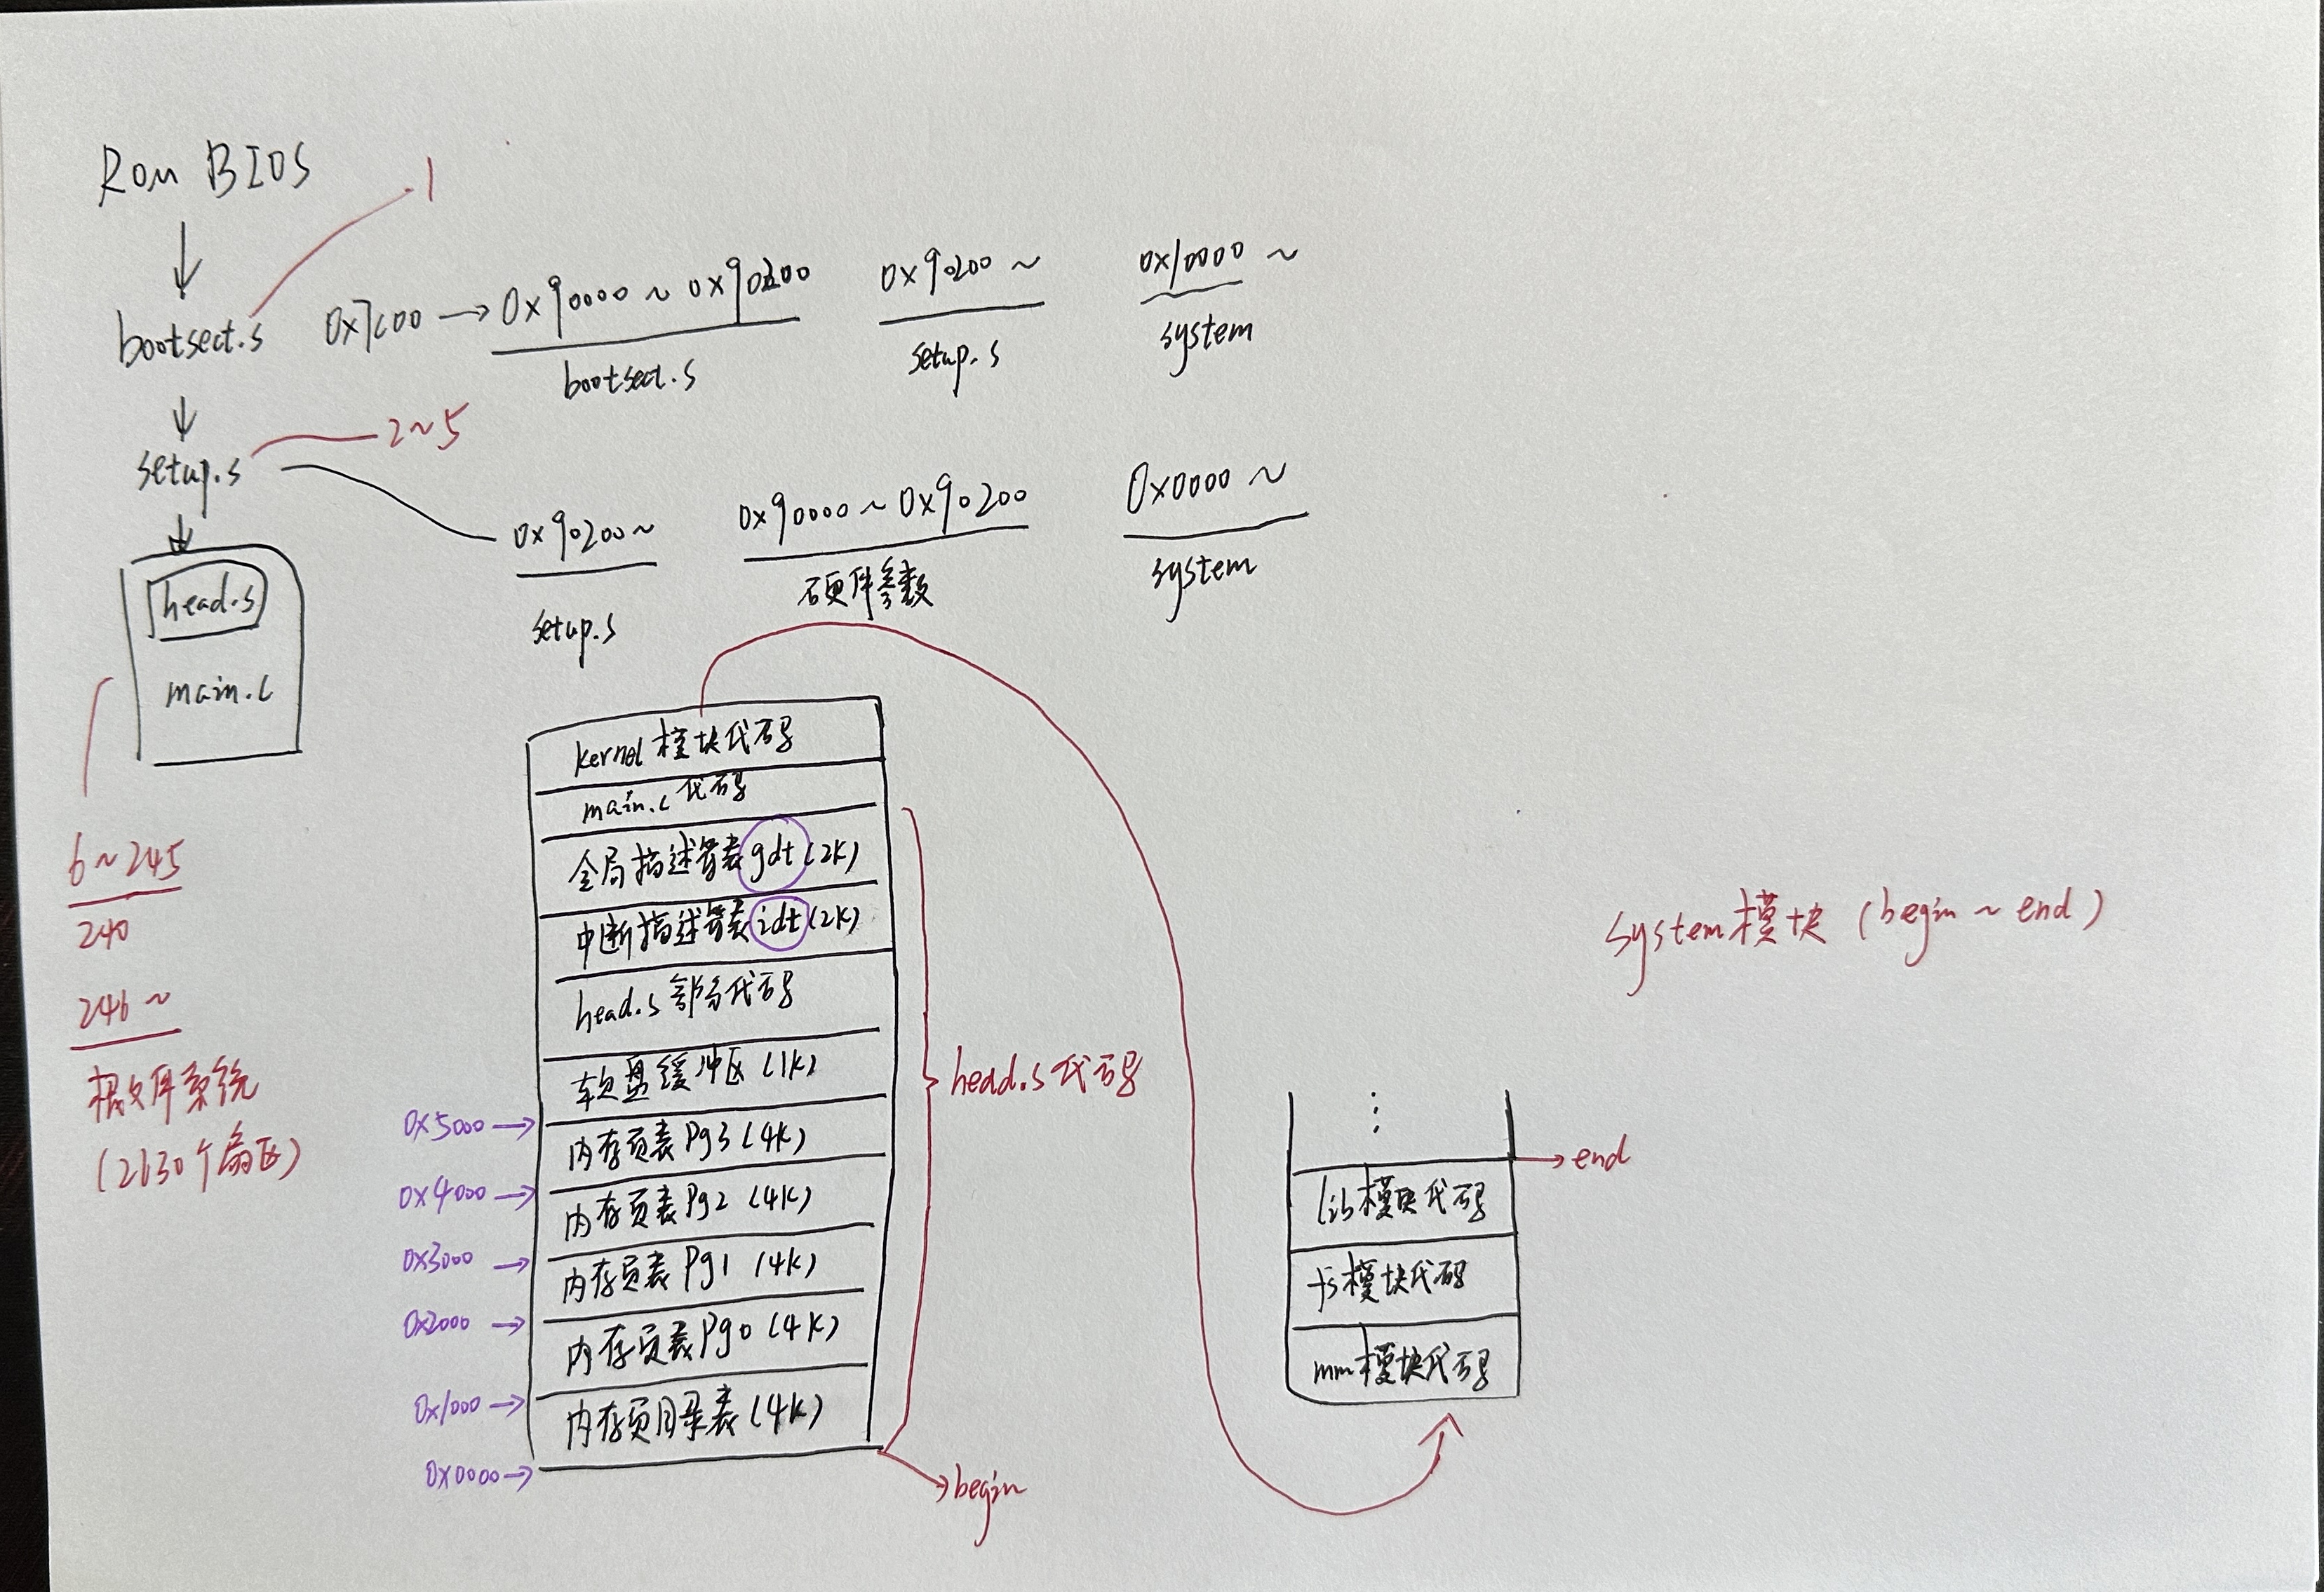 Rom BIOS
1
bootsect.s
0x7c00 → 0x90000 ~ 0x90200
bootsect.s
0x90200 ~
setup.s
0x10000 ~
system
setup.s
2~5
0x90200~
setup.s
0x90000 ~ 0x90200
硬件参数
0x0000 ~
system
head.s
main.c
6~245
240
246~
根文件系统
(2630个扇区)
kernel模块代码
main.c代码
全局描述符表gdt(2k)
中断描述符表idt(2k)
head.s部分代码
软盘缓冲区(1k)
0x5000 →
内存页表pg3(4k)
0x4000 →
内存页表pg2(4k)
0x3000 →
内存页表pg1(4k)
0x2000 →
内存页表pg0(4k)
0x1000 →
内存页目录表(4k)
0x0000 →
begin
head.s代码
system模块(begin ~ end)
⋮
end
lib模块代码
fs模块代码
mm模块代码